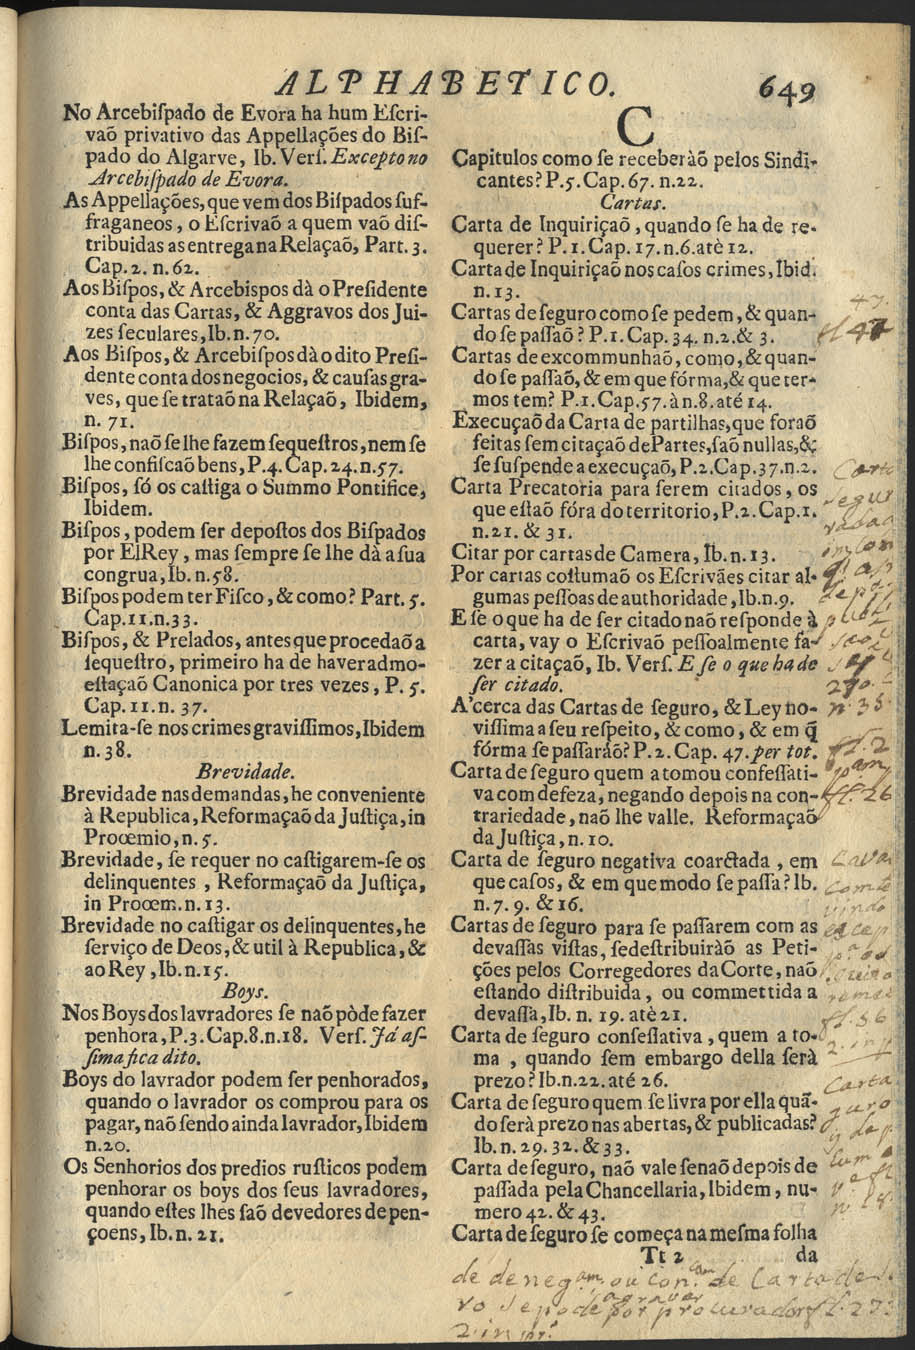 ALPHABETICO. 649
No Arcebiſpado de Evora ha hum Eſcri-
vaõ privativo das Appellações do Biſ-
pado do Algarve, Ib. Verſ. Excepto no
Arcebiſpado de Evora.
As Appellações, que vem dos Biſpados ſuf-
fraganeos, o Eſcrivaõ a quem vaõ diſ-
tribuidas as entrega na Relaçaõ, Part. 3.
Cap. 2. n. 62.
Aos Biſpos, & Arcebispos dà o Preſidente
conta das Cartas, & Aggravos dos Jui-
zes ſeculares, Ib. n. 70.
Aos Biſpos, & Arcebiſpos dà o dito Preſi-
dente conta dos negocios, & cauſas gra-
ves, que ſe trataõ na Relaçaõ, Ibidem,
n. 71.
Biſpos, naõ ſe lhe fazem ſequeſtros, nem ſe
lhe confiſcaõ bens, P. 4. Cap. 24. n. 57.
Biſpos, ſó os caſtiga o Summo Pontifice,
Ibidem.
Biſpos, podem ſer depoſtos dos Biſpados
por ElRey, mas ſempre ſe lhe dà a ſua
congrua, Ib. n. 58.
Biſpos podem ter Fiſco, & como? Part. 5.
Cap. 11. n. 33.
Biſpos, & Prelados, antes que procedaõ a
ſequeſtro, primeiro ha de haver admo-
eſtaçaõ Canonica por tres vezes, P. 5.
Cap. 11. n. 37.
Lemita-ſe nos crimes graviſſimos, Ibidem
n. 38.
Brevidade.
Brevidade nas demandas, he conveniente
à Republica, Reformaçaõ da Juſtiça, in
Proœmio, n. 5.
Brevidade, ſe requer no caſtigarem-ſe os
delinquentes, Reformaçaõ da Juſtiça,
in Proœm. n. 13.
Brevidade no caſtigar os delinquentes, he
ſerviço de Deos, & util à Republica, &
ao Rey, Ib. n. 15.
Boys.
Nos Boys dos lavradores ſe naõ pòde fazer
penhora, P. 3. Cap. 8. n. 18. Verſ. Já aſ-
ſima fica dito.
Boys do lavrador podem ſer penhorados,
quando o lavrador os comprou para os
pagar, naõ ſendo ainda lavrador, Ibidem
n. 20.
Os Senhorios dos predios ruſticos podem
penhorar os boys dos ſeus lavradores,
quando eſtes lhes ſaõ devedores de pen-
çoens, Ib. n. 21.
C
Capitulos como ſe receberàõ pelos Sindi-
cantes? P. 5. Cap. 67. n. 22.
Cartas.
Carta de Inquiriçaõ, quando ſe ha de re-
querer? P. 1. Cap. 17. n. 6. atè 12.
Carta de Inquiriçaõ nos caſos crimes, Ibid.
n. 13.
Cartas de ſeguro como ſe pedem, & quan-
do ſe paſſaõ? P. 1. Cap. 34. n. 2. & 3.
Cartas de excommunhaõ, como, & quan-
do ſe paſſaõ, & em que fórma, & que ter-
mos tem? P. 1. Cap. 57. à n. 8. até 14.
Execuçaõ da Carta de partilhas, que foraõ
feitas ſem citaçaõ de Partes, ſaõ nullas, &
ſe ſuſpende a execuçaõ, P. 2. Cap. 37. n. 2.
Carta Precatoria para ſerem citados, os
que eſtaõ fóra do territorio, P. 2. Cap. 1.
n. 21. & 31.
Citar por cartas de Camera, Ib. n. 13.
Por cartas coſtumaõ os Eſcrivães citar al-
gumas peſſoas de authoridade, Ib. n. 9.
E ſe o que ha de ſer citado naõ reſponde à
carta, vay o Eſcrivaõ peſſoalmente fa-
zer a citaçaõ, Ib. Verſ. E ſe o que ha de
ſer citado.
A'cerca das Cartas de ſeguro, & Ley no-
viſſima a ſeu reſpeito, & como, & em q̃
fórma ſe paſſaràõ? P. 2. Cap. 47. per tot.
Carta de ſeguro quem a tomou confeſſati-
va com defeza, negando depois na con-
trariedade, naõ lhe valle. Reformaçaõ
da Juſtiça, n. 10.
Carta de ſeguro negativa coarctada, em
que caſos, & em que modo ſe paſſa? Ib.
n. 7. 9. & 16.
Cartas de ſeguro para ſe paſſarem com as
devaſſas viſtas, ſe deſtribuiràõ as Peti-
ções pelos Corregedores da Corte, naõ
eſtando diſtribuida, ou commettida a
devaſſa, Ib. n. 19. atè 21.
Carta de ſeguro confeſſativa, quem a to-
ma, quando ſem embargo della ſerà
prezo? Ib. n. 22. até 26.
Carta de ſeguro quem ſe livra por ella quã-
do ſerà prezo nas abertas, & publicadas?
Ib. n. 29. 32. & 33.
Carta de ſeguro, naõ vale ſenaõ depois de
paſſada pela Chancellaria, Ibidem, nu-
mero 42. & 43.
Carta de ſeguro ſe começa na meſma folha
Tt 2 da
47.
Carta
n. 35.
Carta
de Carta de